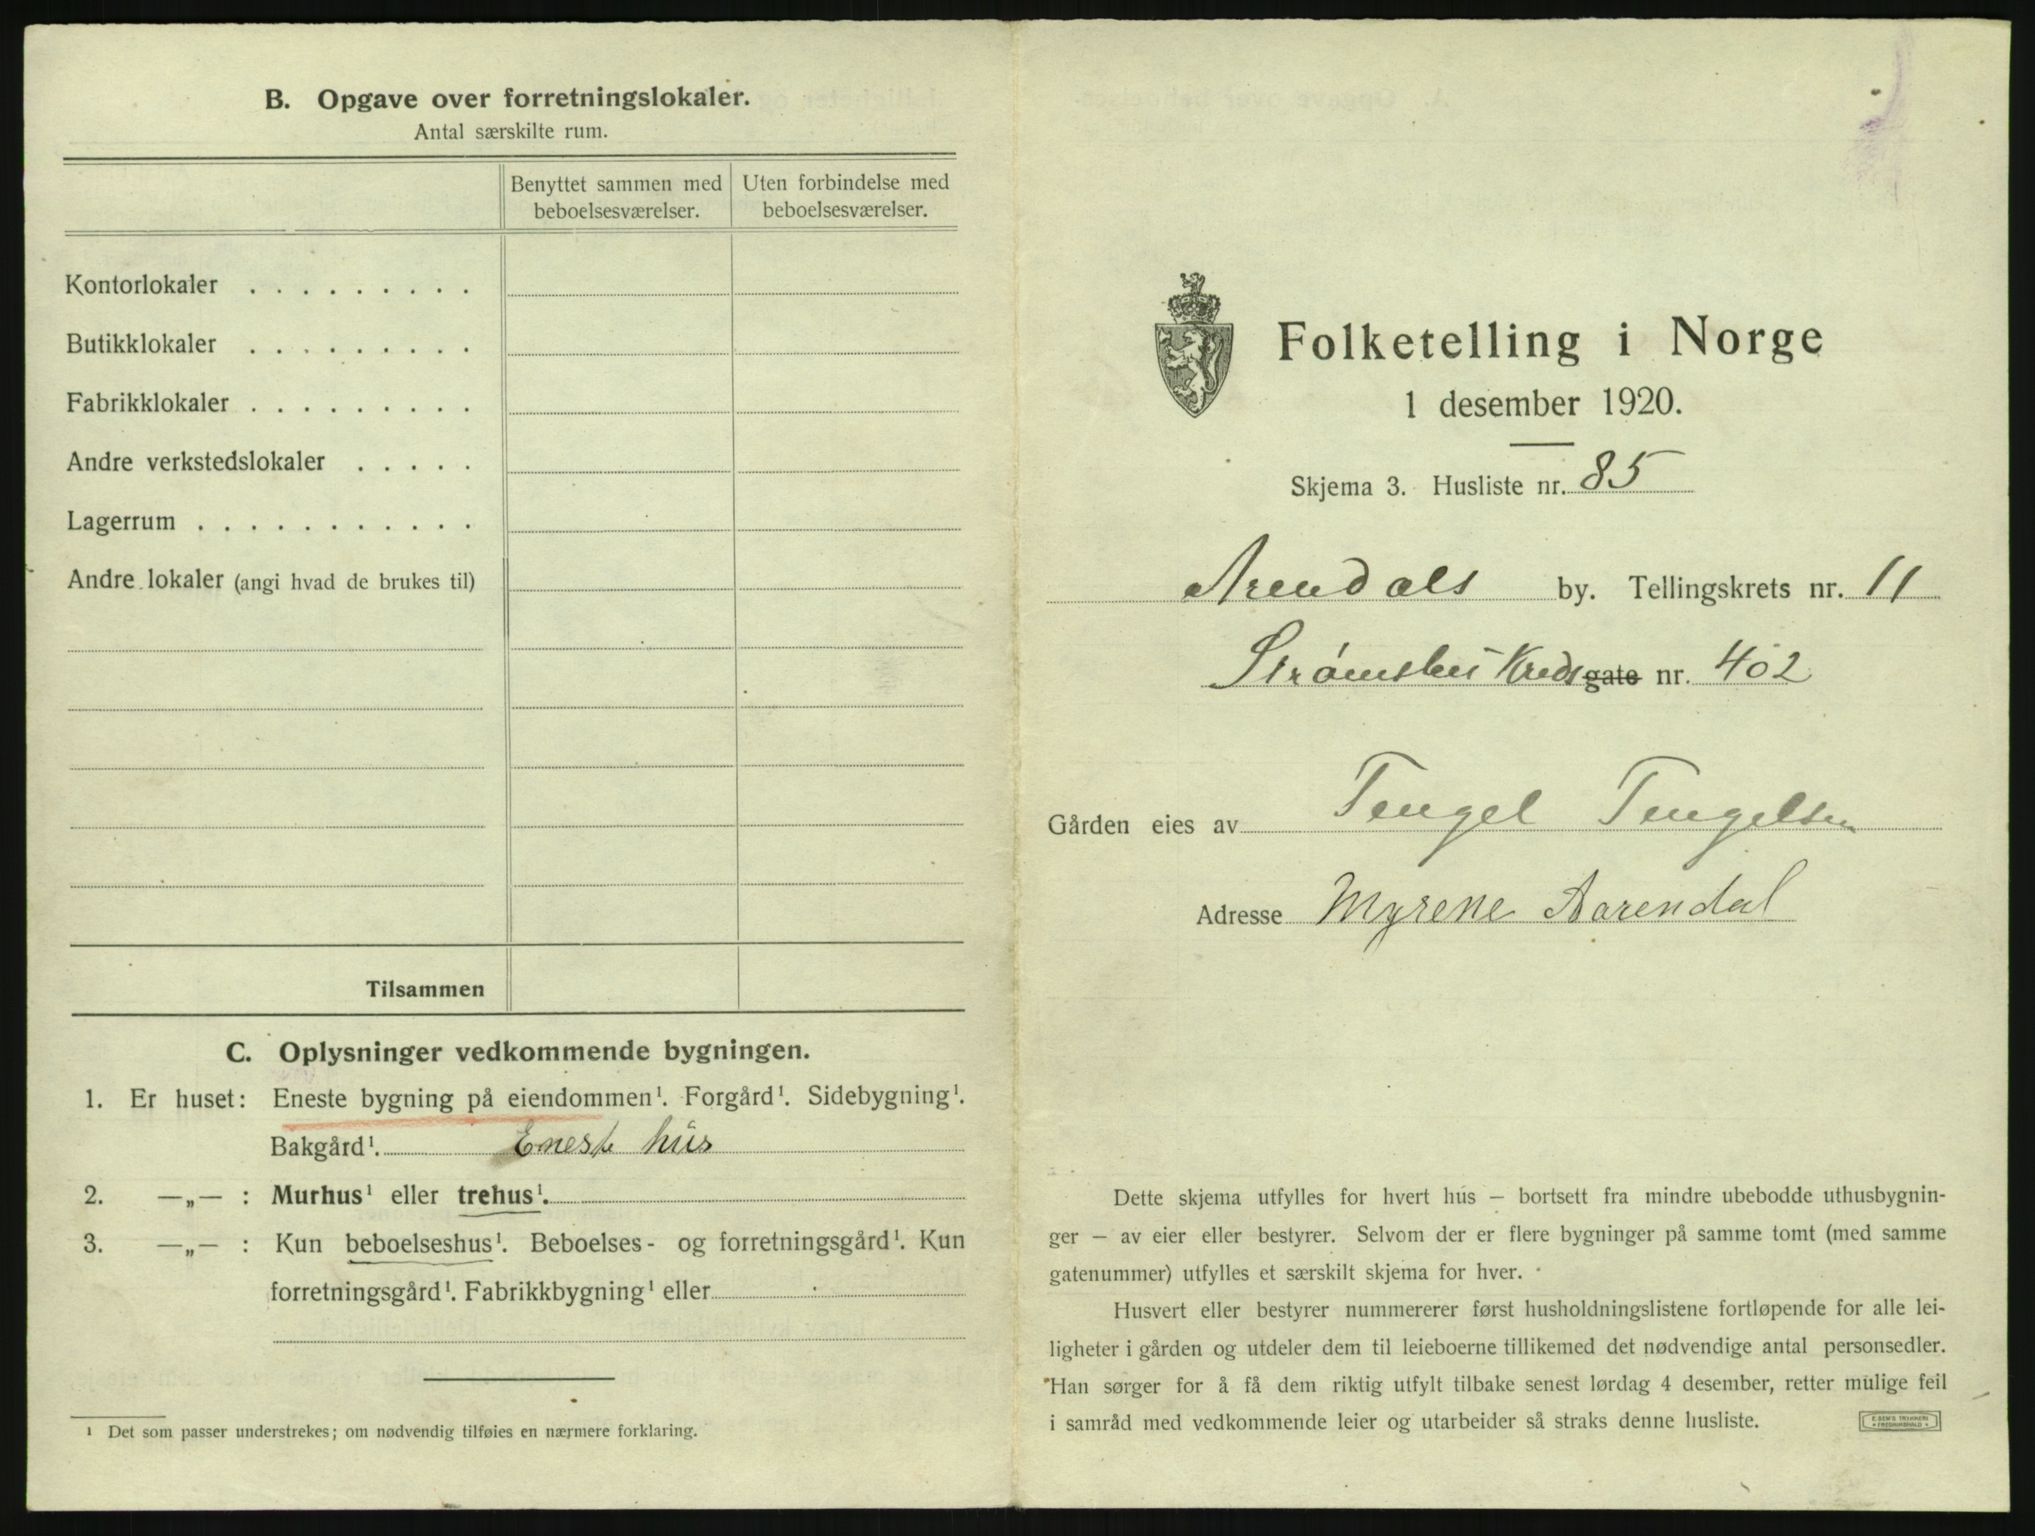 B. Opgave over forretningslokaler.
Antal særskilte rum.
Benyttet sammen med beboelsesværelser.
Uten forbindelse med beboelsesværelser.
Kontorlokaler . . . . . . . . .
Butikklokaler . . . . . . . . .
Fabrikklokaler . . . . . . . . .
Andre verkstedslokaler . . . . .
Lagerrum . . . . . . . . . . .
Andre lokaler (angi hvad de brukes til)
Tilsammen
C. Oplysninger vedkommende bygningen.
1. Er huset: Eneste bygning på eiendommen¹. Forgård¹. Sidebygning¹.
Bakgård¹. Eneste hus
2. —„— : Murhus¹ eller trehus¹.
3. —„— : Kun beboelseshus¹. Beboelses- og forretningsgård¹. Kun
forretningsgård¹. Fabrikkbygning¹ eller
¹ Det som passer understrekes; om nødvendig tilføies en nærmere forklaring.
Folketelling i Norge
1 desember 1920.
Skjema 3. Husliste nr. 85
Arendals by. Tellingskrets nr. 11
Strømsbu Kreds gate nr. 402
Gården eies av Tengel Tengelsen
Adresse Myrene Aarendal
Dette skjema utfylles for hvert hus – bortsett fra mindre ubebodde uthusbygnin-
ger – av eier eller bestyrer. Selvom der er flere bygninger på samme tomt (med samme
gatenummer) utfylles et særskilt skjema for hver.
Husvert eller bestyrer nummererer først husholdningslistene fortløpende for alle lei-
ligheter i gården og utdeler dem til leieboerne tillikemed det nødvendige antal personsedler.
Han sørger for å få dem riktig utfylt tilbake senest lørdag 4 desember, retter mulige feil
i samråd med vedkommende leier og utarbeider så straks denne husliste.
E. SEM'S TRYKKERI
FREDRIKSHALD